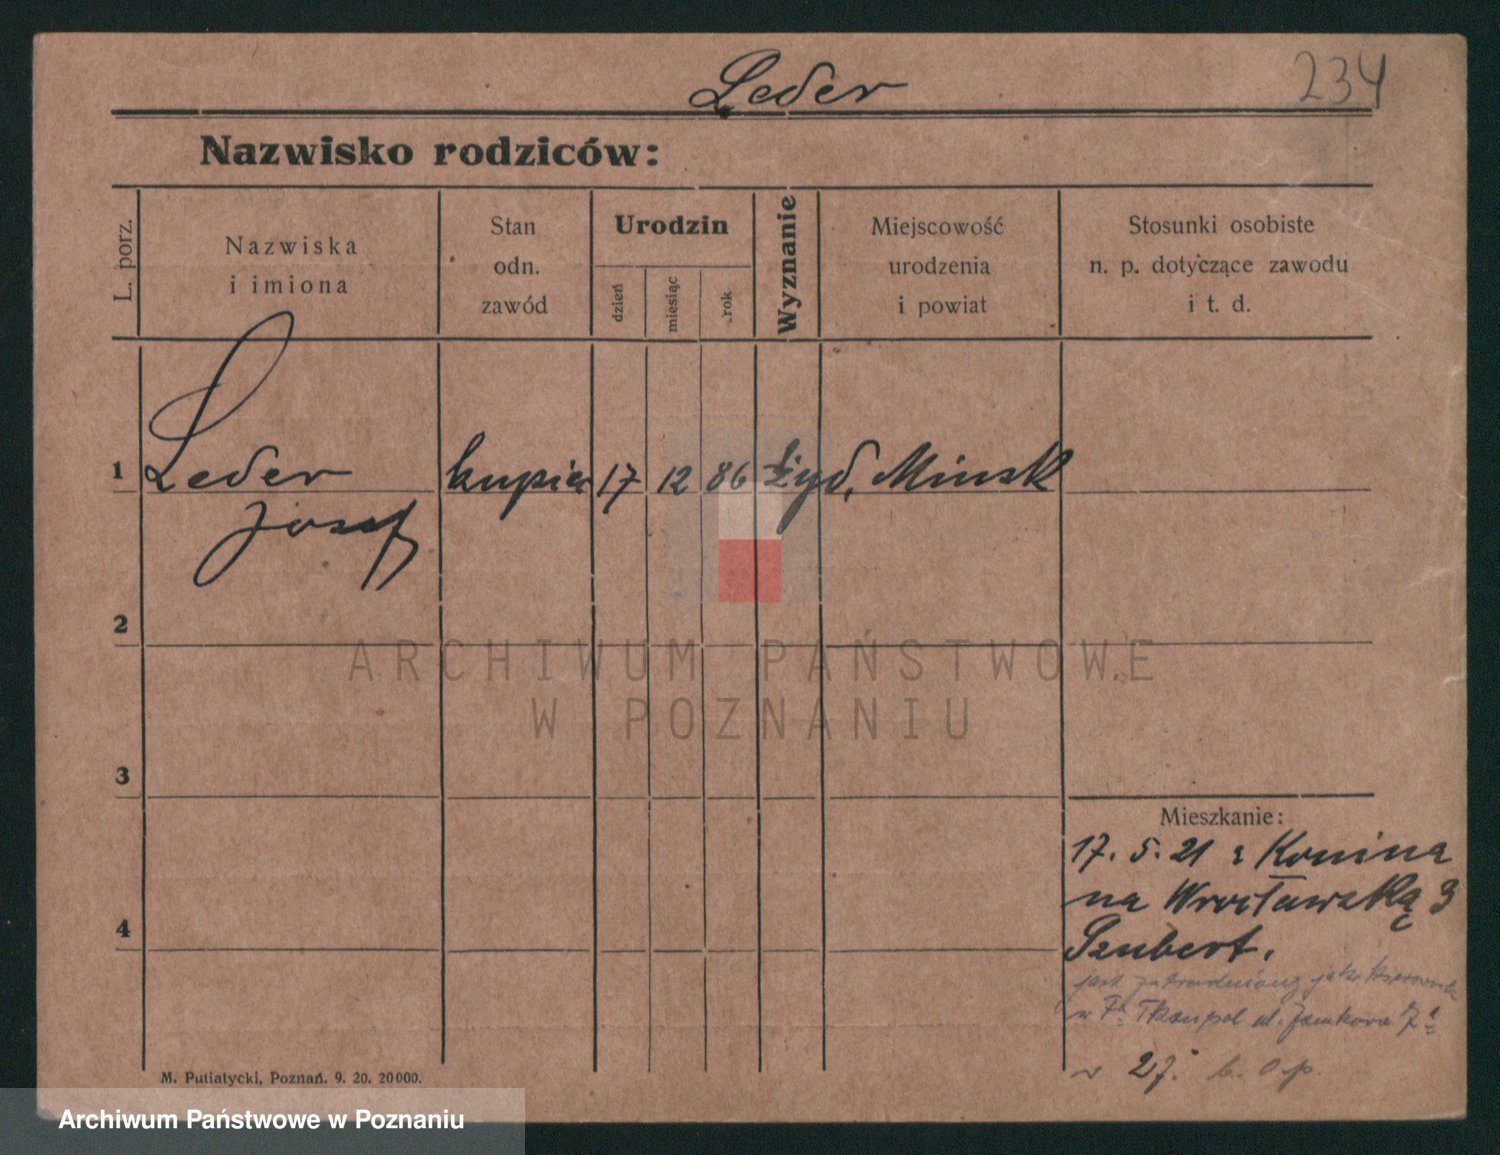 Leder
234
Nazwisko rodziców:
L. porz.
Nazwiska
i imiona
Stan
odn.
zawód
Urodzin
dzień
miesiąc
rok
Wyznanie
Miejscowość
urodzenia
i powiat
Stosunki osobiste
n. p. dotyczące zawodu
i t. d.
1 Leder kupiec 17 12 86 żyd. Minsk
Josef
2
ARCHIWUM PAŃSTWOWE
W POZNANIU
3
Mieszkanie:
17. 5. 21 z Konina
na Wrocławską 9
4
Szubert.
jest zatrudniony jako
w ul. Zamkowa 7
27.
M. Putiatycki, Poznań. 9. 20. 20000.
Archiwum Państwowe w Poznaniu